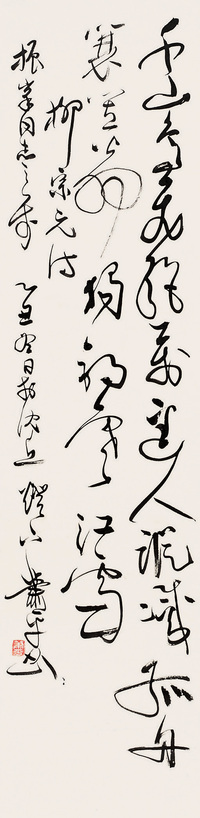 千山鸟飞绝万径人踪灭孤舟
蓑笠翁独钓寒江雪
柳宗元诗
振峰同志之属
乙丑冬日于沈上
萧